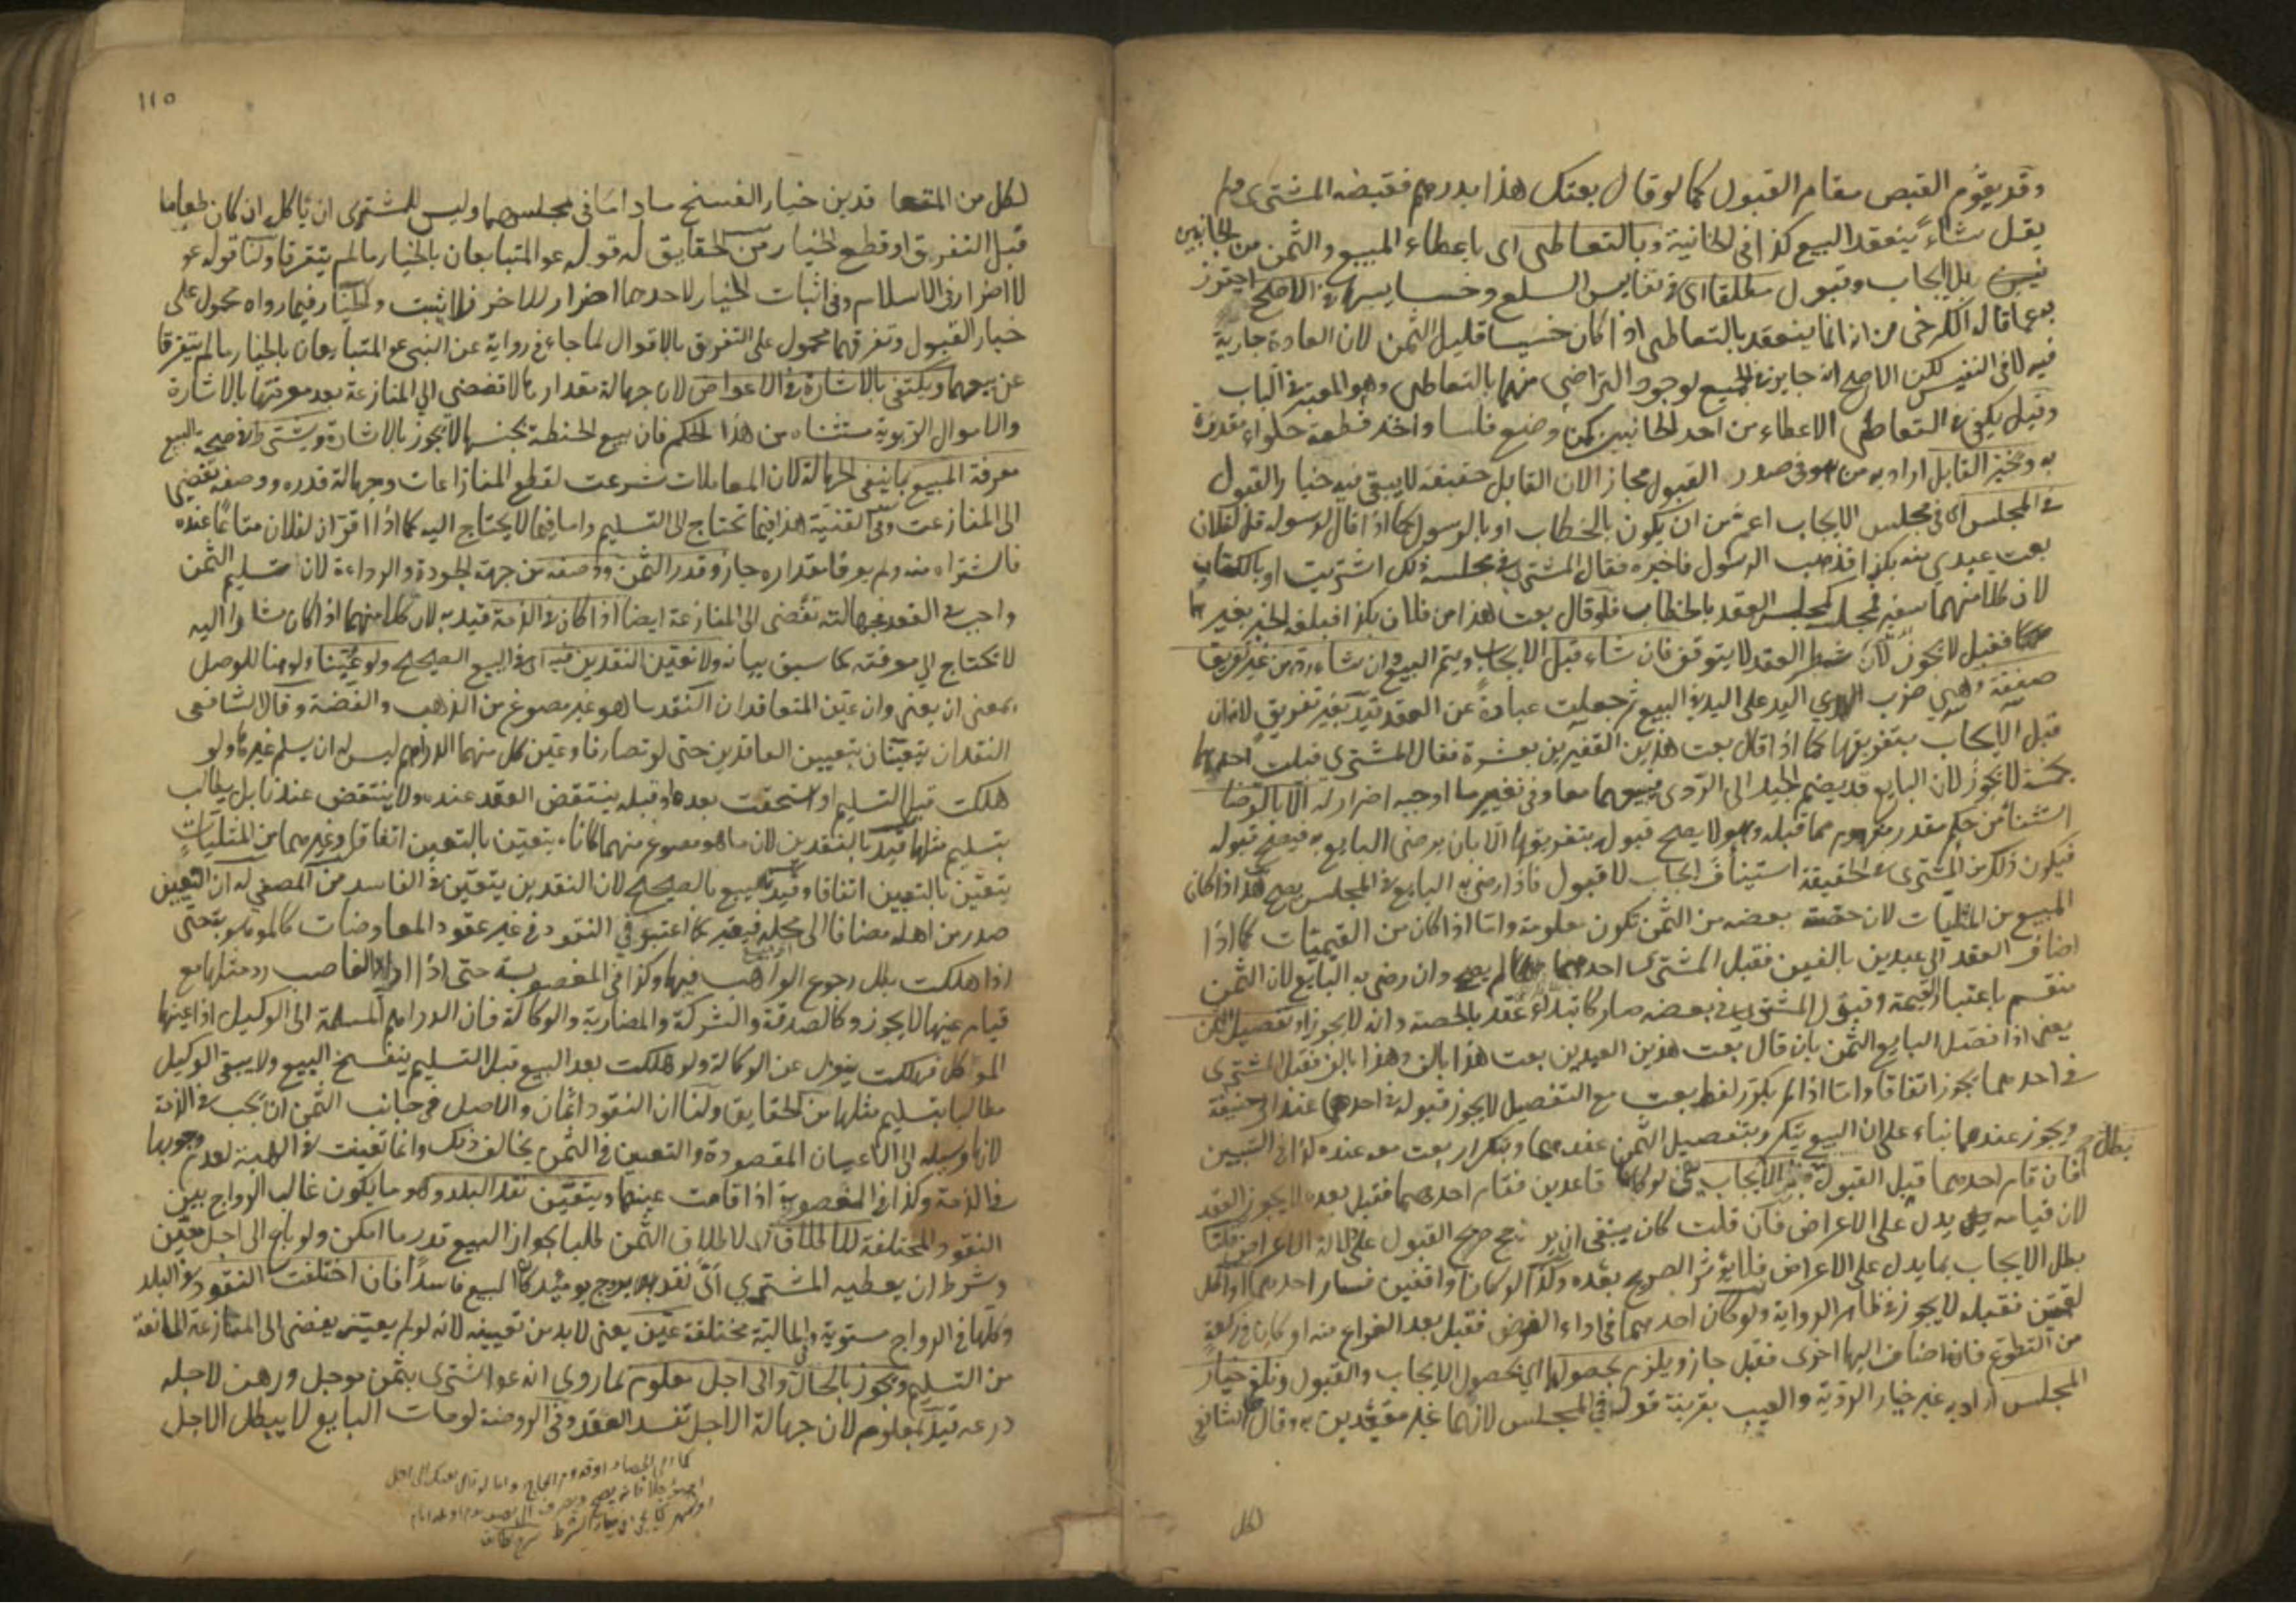 وقد يقوم القبض مقام القبول كما لو قال بعتك هذا بدرهم فقبضه المشتري ولم
يقل شاء ينعقد البيع كذا في الخانية وبالتعاطى اى باعطاء المبيع والثمن من الجانبين
بلا ايجاب وقبول مطلقا اى في نفايس السلع وخسايسها في الاصح احترز
به عما قال الكرخى من انه انما ينعقد بالتعاطى اذا كان خسيسا قليل الثمن لان العادة جارية
فيه لا في النفيس لكن الاصح انه جايز في الجميع لوجود التراضى منهما بالتعاطى وهو المعتبر في الباب
وقيل يكفى في التعاطى الاعطاء من احد الجانبين كمن وضع فلسا واخذ قطعة حلواء مقدرة
به وخير القابل اراد به من هو في صدد القبول مجازا لان القابل حقيقة لا يبقى فيه خيار القبول
في المجلس اى في مجلس الايجاب اعم من ان يكون بالخطاب او بالرسول كما اذا قال لرسوله قل لفلان
بعت عبدى منه بكذا فذهب الرسول فاخبره فقال المشترى في مجلسه ذلك اشتريت او بالكتاب
لان كلا منهما سفير فمجلسه كمجلس العقد بالخطاب فلو قال بعت هذا من فلان بكذا فبلغه الخبر بغيرهما
فقبل لا يجوز لان شطر العقد لا يتوقف فان شاء قبل الايجاب ويتم البيع وان شاء رد من غير تفريق
صفقة وهي ضرب اليد على اليد في البيع ثم جعلت عبارة عن العقد قيد بغير تفريق لانه ان
قبل الايجاب بتفريقها كما اذا قال بعت هذين القفيزين بعشرة فقال المشترى قبلت احدهما
بخمسة لا يجوز لان البايع قد يضم الجيد الى الردى فيبيعهما معا وفي تغيير ما اوجبه اضرار له الا بالرضا
استثناء من حكم مقدر مفهوم مما قبله وهو لا يصح قبوله بتفريقها الا بان يرضى البايع به فيصح قبوله
فيكون ذلك من المشترى في الحقيقة استيناف ايجاب لا قبول فاذا رضى به البايع في المجلس يصح هذا اذا كان
المبيع من المثليات لان حصة بعضه من الثمن تكون معلومة واما اذا كان من القيميات كما اذا
اضاف العقد الى عبدين بالفين فقبل المشترى احدهما لم يصح وان رضى به البايع لان الثمن
منقسم باعتبار القيمة وقبول المشترى في بعضه صار كابتداء عقد بالحصة وانه لا يجوز او تفصيل الثمن
يعنى اذا فصل البايع الثمن بان قال بعت هذين العبدين بعت هذا بالف وهذا بالف فقبل المشترى
في احدهما يجوز اتفاقا واما اذا لم يكرر لفظ بعت مع التفصيل لا يجوز قبوله في احدهما عند ابى حنيفة
ويجوز عندهما بناء على ان البيع يتكرر بتفصيل الثمن عندهما وبتكرار بعت معه عنده كذا في التبيين
فان قام احدهما قبل القبول بطل الايجاب حتى لو كانا قاعدين فقام احدهما فقبل بعده لا يجوز العقد
لان قيامه يدل على الاعراض فان قلت كان ينبغى ان يرجح صريح القبول على دلالة الاعراض قلنا
بطل الايجاب بما يدل على الاعراض فلا يؤثر الصريح بعده وكذا لو كانا واقفين فسار احدهما او اكل
لقمتين فقبله لا يجوز في ظاهر الرواية ولو كان احدهما في اداء الفرض فقبل بعد الفراغ منه او كان في ركعة
من التطوع فاضاف اليها اخرى فقبل جاز ويلزم بحصولهما اى بحصول الايجاب والقبول ونلغى خيار
المجلس اراد به غير خيار الرؤية والعيب بقرينة قوله في المجلس لانهما غير مقيدين به وقال الشافعى
لكل
١١٥
لكل من المتعاقدين خيار الفسخ ماداما في مجلسهما وليس للمشترى ان ياكل ان كان طعاما
قبل التفريق او قطع الخيار من الحقايق له قوله عم المتبايعان بالخيار ما لم يتفرقا ولنا قوله عم
لا اضرار في الاسلام وفي اثبات الخيار لاحدهما اضرار للآخر فلا يثبت والخيار فيما رواه محمول على
خيار القبول وتفرقهما محمول على التفرق بالاقوال لما جاء في رواية عن النبى عم المتبايعان بالخيار ما لم يتفرقا
عن بيعهما ويكتفى بالاشارة في الاعواض لان جهالة مقدارها لا تفضى الى المنازعة بعد معرفتها بالاشارة
والاموال الربوية مستثناه من هذا الحكم فان بيع الحنطة بجنسها لا يجوز بالاشارة ويشترط لصحة البيع
معرفة المبيع بما ينفى الجهالة لان المعاملات شرعت لقطع المنازعات وجهالة قدره ووصفه تفضى
الى المنازعت وفي القنية هذا فيما تحتاج الى التسليم واما فيما لا يحتاج اليه كما اذا اقر ان لفلان متاعا عنده
فاشتراه منه ولم يعرفا مقداره جاز وقدر الثمن ووصفه من جهة الجودة والرداءة لان تسليم الثمن
واجب في العقد فجهالته تفضى الى المنازعة ايضا اذا كان في الذمة قيد به لان كلا منهما اذا كان مشارا اليه
لا يحتاج الى معرفته كما سبق بيانه ولا نعين النقدين فيه اى في البيع الصحيح ولو عينا ولو هنا للوصل
بمعنى ان يعنى وان عين المتعاقدان النقد بما هو غير مصوغ من الذهب والفضة وقال الشافعى
النقدان يتعينان بتعيين العاقدين حتى لو تصارفا وعين كل منهما الدراهم ليس له ان يسلم غيرها ولو
هلكت قبل التسليم او استحقت بعده او قبله ينتقض العقد عنده ولا ينتقض عندنا بل يطالب
بتسليم مثلها قيد بالنقدين لان ما هو مصوغ منهما كاناء يتعين بالتعيين اتفاقا وغيرهما من المثليات
يتعين بالتعيين اتفاقا وقيد البيع بالصحيح لان النقدين يتعين في الفاسد من المصفى له ان التعيين
صدر من اهله مضافا الى محله فيعتبر كما اعتبر في النقود في غير عقود المعاوضات كالموهوبة حتى
اذا هلكت بطل رجوع الواهب فيها وكذا في المغصوبة حتى اذا اراد الغاصب رد مثلها مع
قيام عينها لا يجوز وكالصدقة والشركة والمضاربة والوكالة فان الدراهم المسلمة الى الوكيل اذا عينها
الموكل فهلكت ينعزل عن الوكالة ولو هلكت بعد البيع قبل التسليم ينفسخ البيع ولا يبقى الوكيل
مطالبا بتسليم مثلها من الحقايق ولنا ان النقود اثمان والاصل في جانب الثمن ان تجب في الذمة
لانها وسيلة الى الاعيان المقصودة والتعيين في الثمن يخالف ذلك وانما تعينت في الهبة لعدم وجوبها
في الذمة وكذا في المغصوبة اذا قامت عينها ويتعين نقد البلد وهو ما يكون غالب الرواج بين
النقود المختلفة للاطلاق اى لاطلاق الثمن طلبا لجواز البيع قدر ما امكن ولو باع الى اجل معين
وشرط ان يعطيه المشترى اى نقد يروج يومئذ كان البيع فاسدا فان اختلفت النقود في البلد
وكلها في الرواج مستوية وفي المالية مختلفة عين يعنى لا بد من تعيينه لانه لو لم يعين يفضى الى المنازعة المانعة
من التسليم ويجوز بالحال والى اجل معلوم لما روى انه عم اشترى بثمن موجل ورهن لاجله
درعه قيد بمعلوم لان جهالة الاجل تفسد العقد وفي الروضة لو مات البايع لا يبطل الاجل